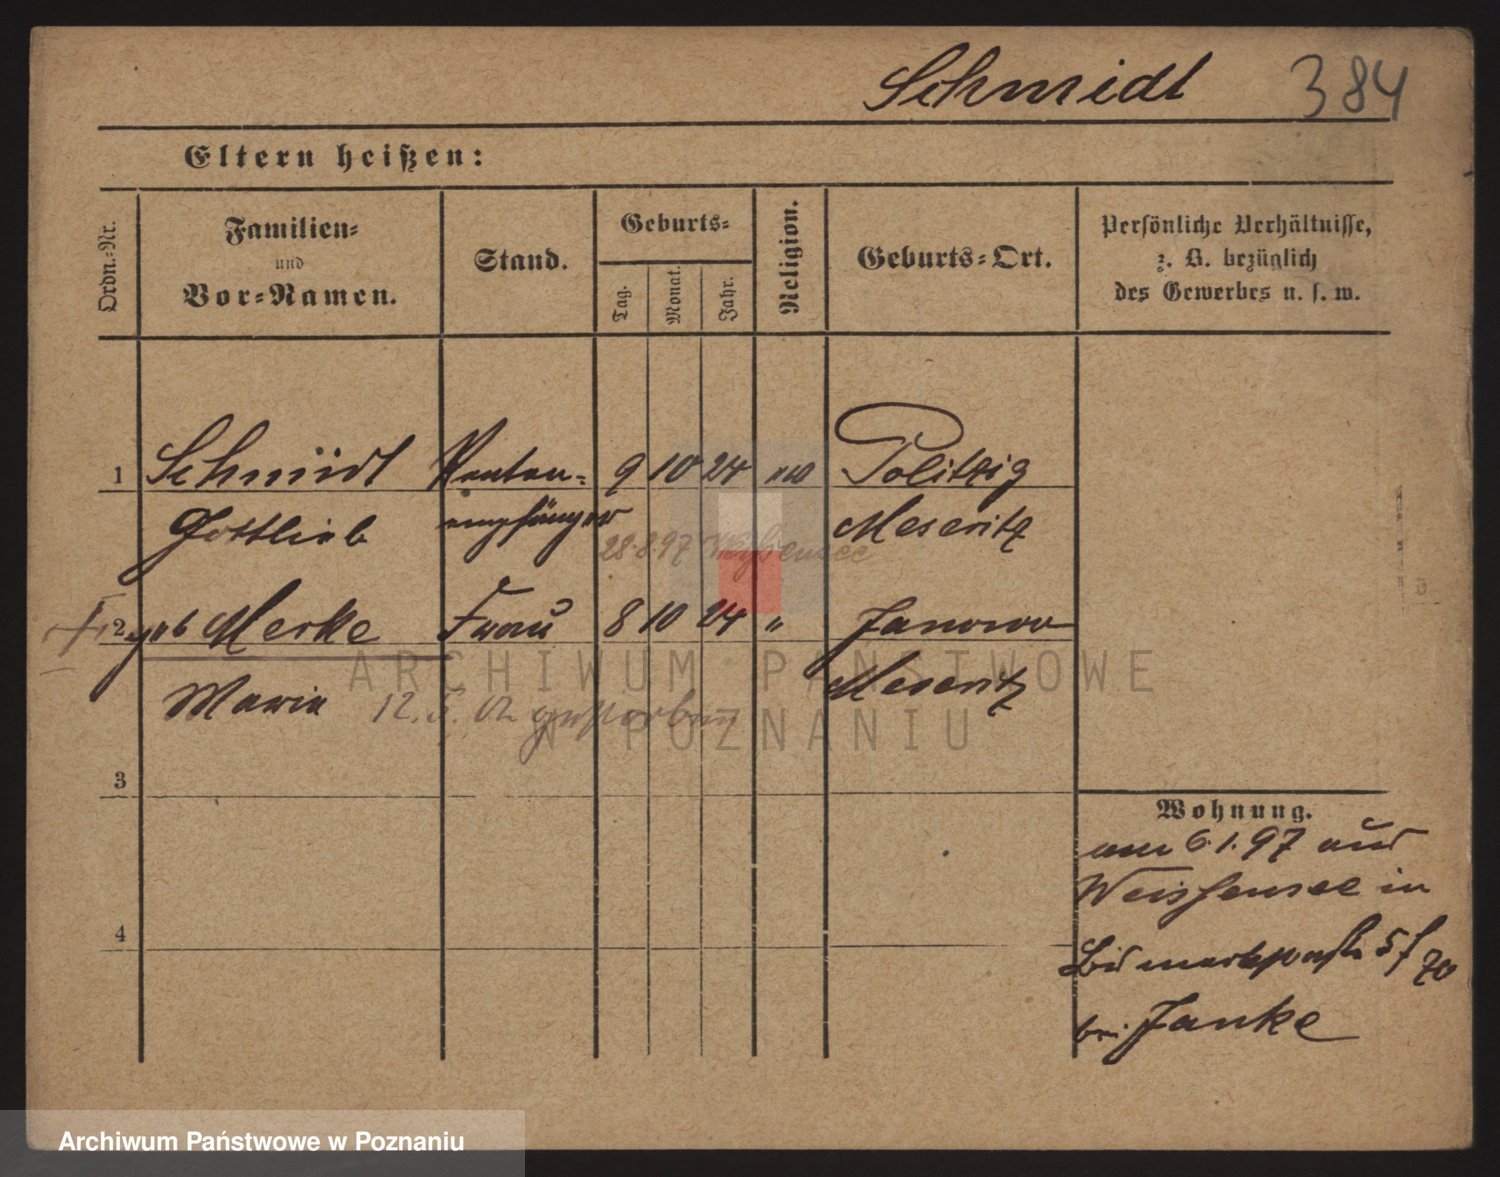 Schmidt 384
Eltern heißen:
Ordn.-Nr.
Familien-
und
Vor-Namen.
Stand.
Geburts-
Tag.
Monat.
Jahr.
Religion.
Geburts-Ort.
Persönliche Verhältnisse,
z. B. bezüglich
des Gewerbes u. s. w.
1 Schmidt Renten- 9 10 24 Politzig
Gottlieb empfänger Meseritz
28.8.97
2 geb Merke Frau 8 10 24 " Janowo
Marie 12.5.02 gestorben Meseritz
3
4
Wohnung.
am 6.1.97 aus
Weissensee in
5
bei Janke
ARCHIWUM PAŃSTWOWE
W POZNANIU
Archiwum Państwowe w Poznaniu